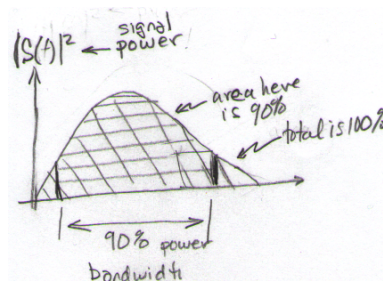 |S(f)|² ← signal
power
area here
is 90%
total is 100%
90% power
bandwidth